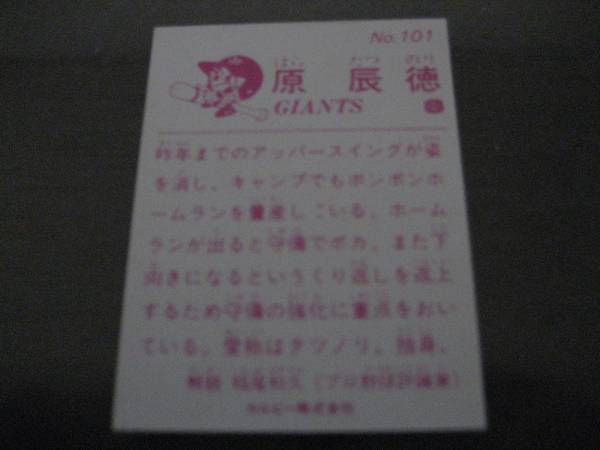 No.101
はら たつ のり
原 辰徳
GIANTS
昨年までのアッパースイングが姿
を消し、キャンプでもポンポンホ
ームランを量産している。ホーム
ランが出ると守備でポカ、また下
向きになるというくり返しを返上
するため守備の強化に重点をおい
ている。愛称はタツノリ。独身。
解説 稲尾和久(プロ野球評論家)
カルビー株式会社